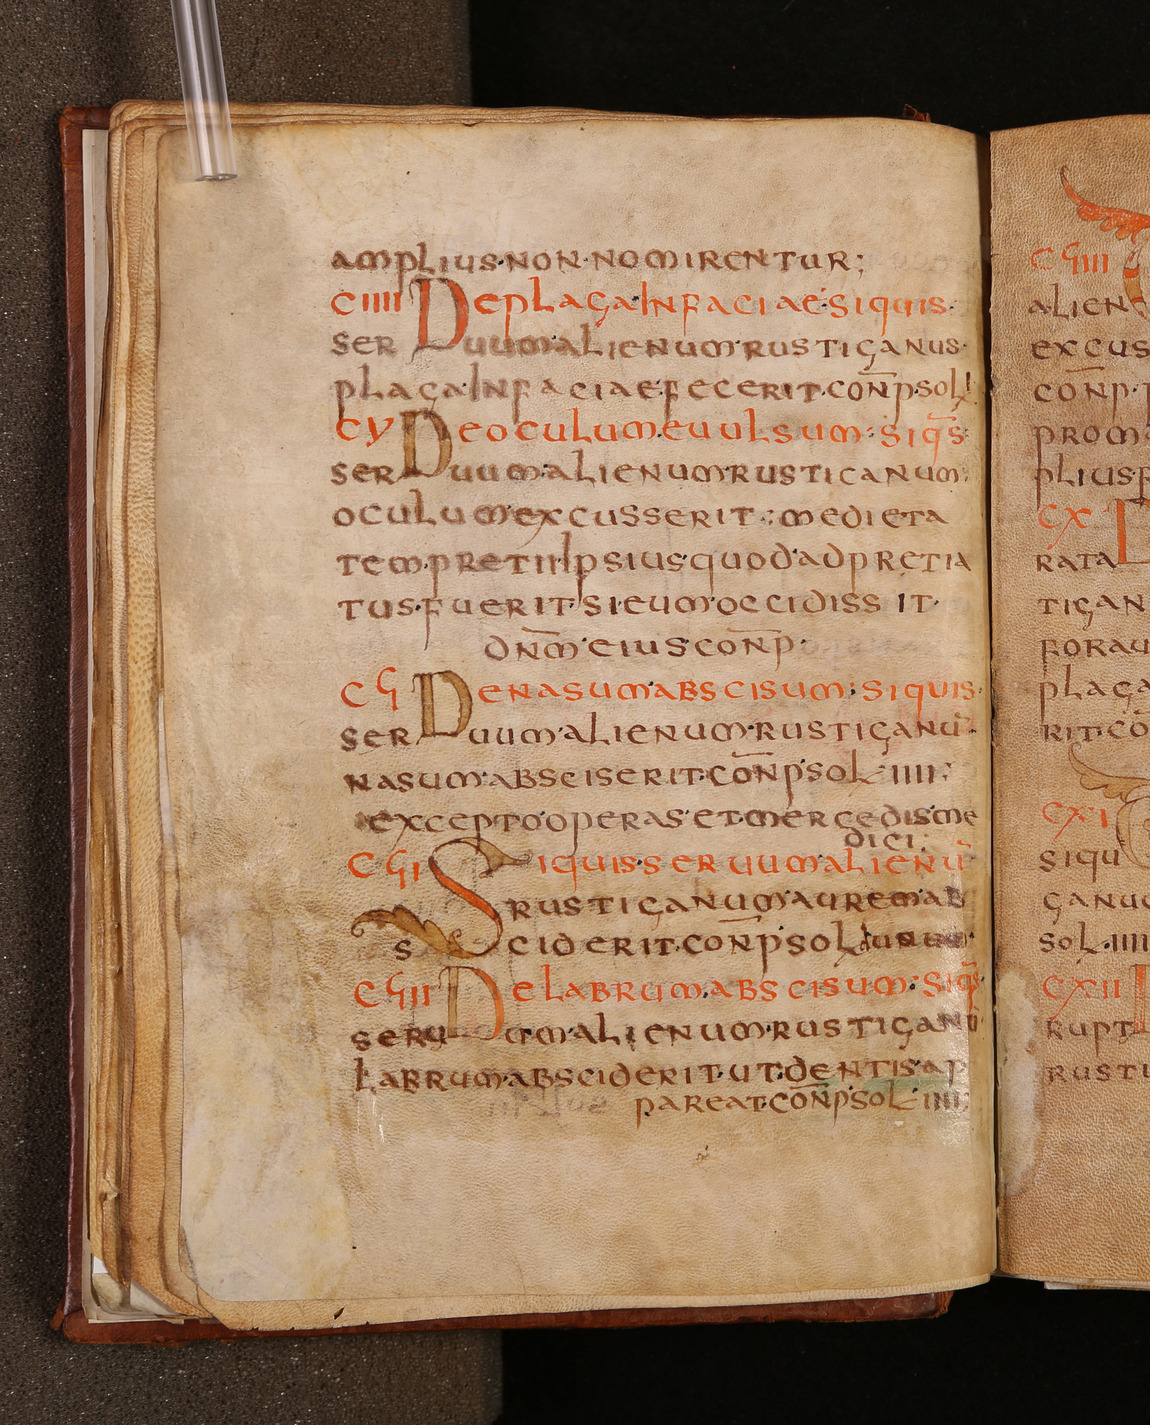 amplius·non·nomirentur;
ciiii De plaga·In faciae·siquis·
ser uuum·alienum·rusticanus·
plaga·In faciae·fecerit·con̄p·sol
cv De oculum·euulsum·siq̄s·
ser uuum·alienum·rusticanum·
oculum·excusserit·:medieta
tem·pretii·Ipsius·quod·ad pretia
tus·fuerit·si·eum·occidiss it·
dn̄m·eius·con̄p·
cϛ De nasum·abscisum·siquis·
ser uuum·alienum·rusticanū·
nasum·absciserit·con̄p·sol·iiii·
excepto·operas·et·mercedis·me
dici;
cϛi Siquis·ser uum·alienū
rusticanum·aurem·ab
s ciderit·con̄p·sol·
cϛii De labrum·abscisum·siq̄s·
seru um·alienum·rusticanū
labrum·absciderit·ut·dentis·ap
pareat·con̄p·sol·iiii·
cϛiiii
alien
excus
con̄p·
prom
plius·
cx
rata
tican
forau
plaga
rit·co
cxi
siqu
canu
sol·iiii
cxii
rupt
rusti